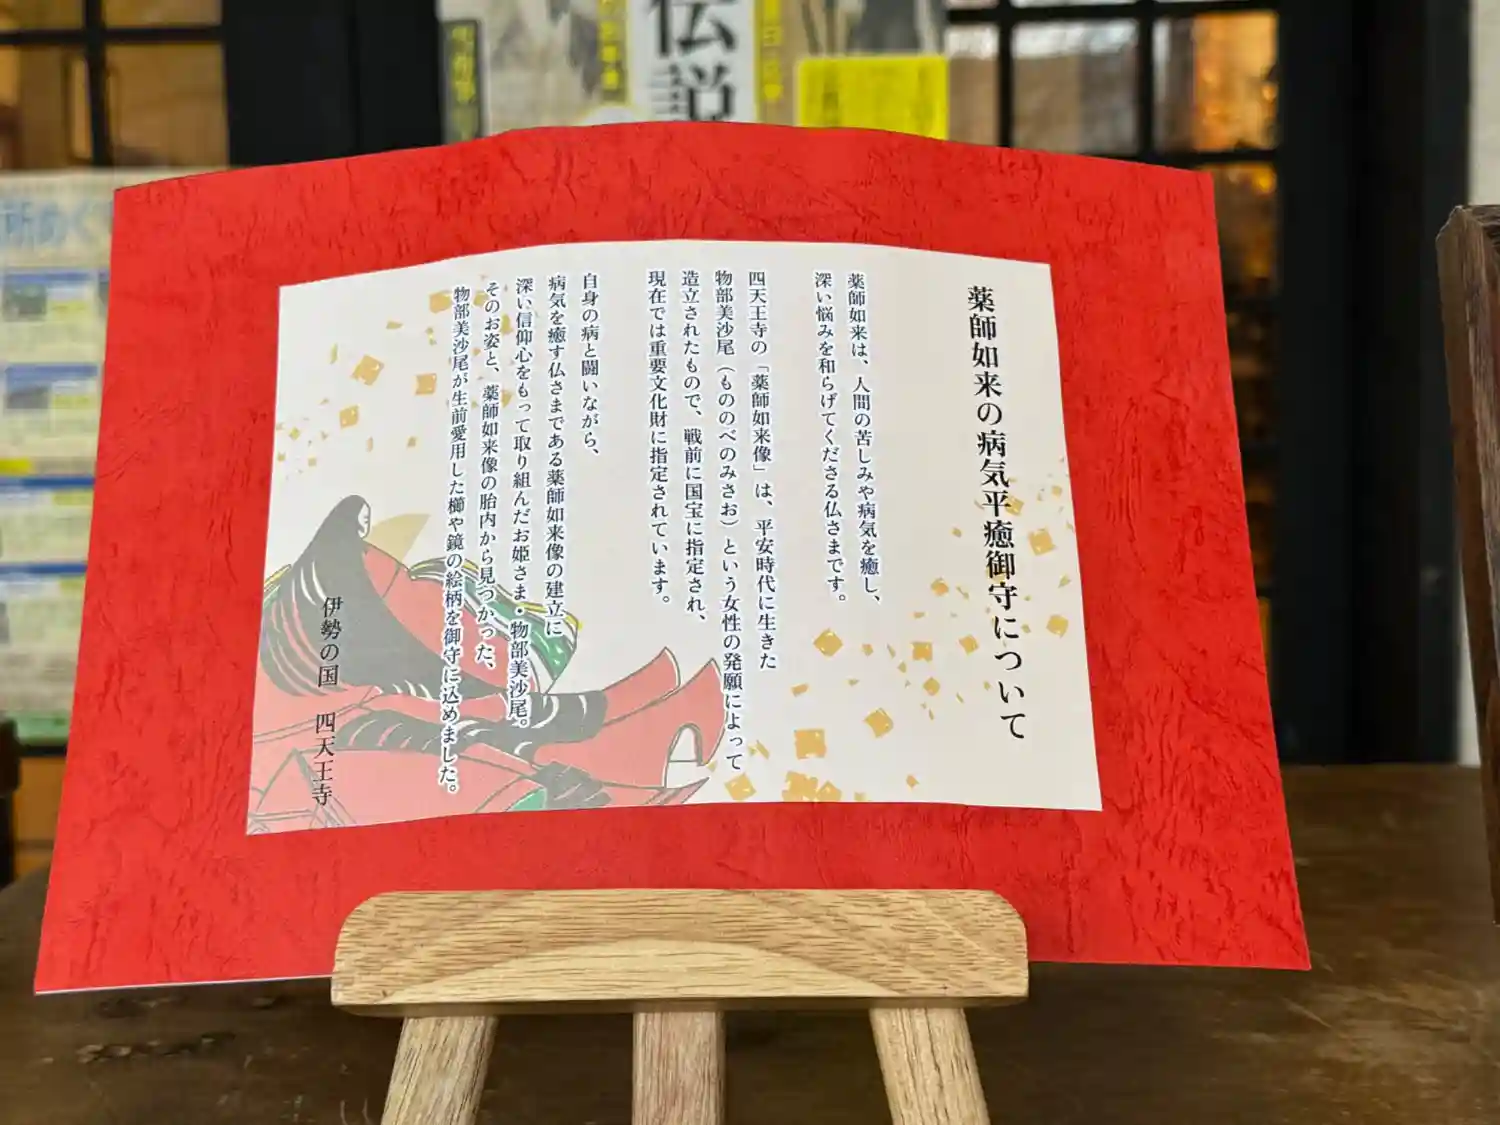 伝説
所めぐ
薬師如来の病気平癒御守について
薬師如来は、人間の苦しみや病気を癒し、
深い悩みを和らげてくださる仏さまです。
四天王寺の「薬師如来像」は、平安時代に生きた
物部美沙尾（もののべのみさお）という女性の発願によって
造立されたもので、戦前に国宝に指定され、
現在では重要文化財に指定されています。
自身の病と闘いながら、
病気を癒す仏さまである薬師如来像の建立に
深い信仰心をもって取り組んだお姫さま・物部美沙尾。
そのお姿と、薬師如来像の胎内から見つかった、
物部美沙尾が生前愛用した櫛や鏡の絵柄を御守に込めました。
伊勢の国　四天王寺